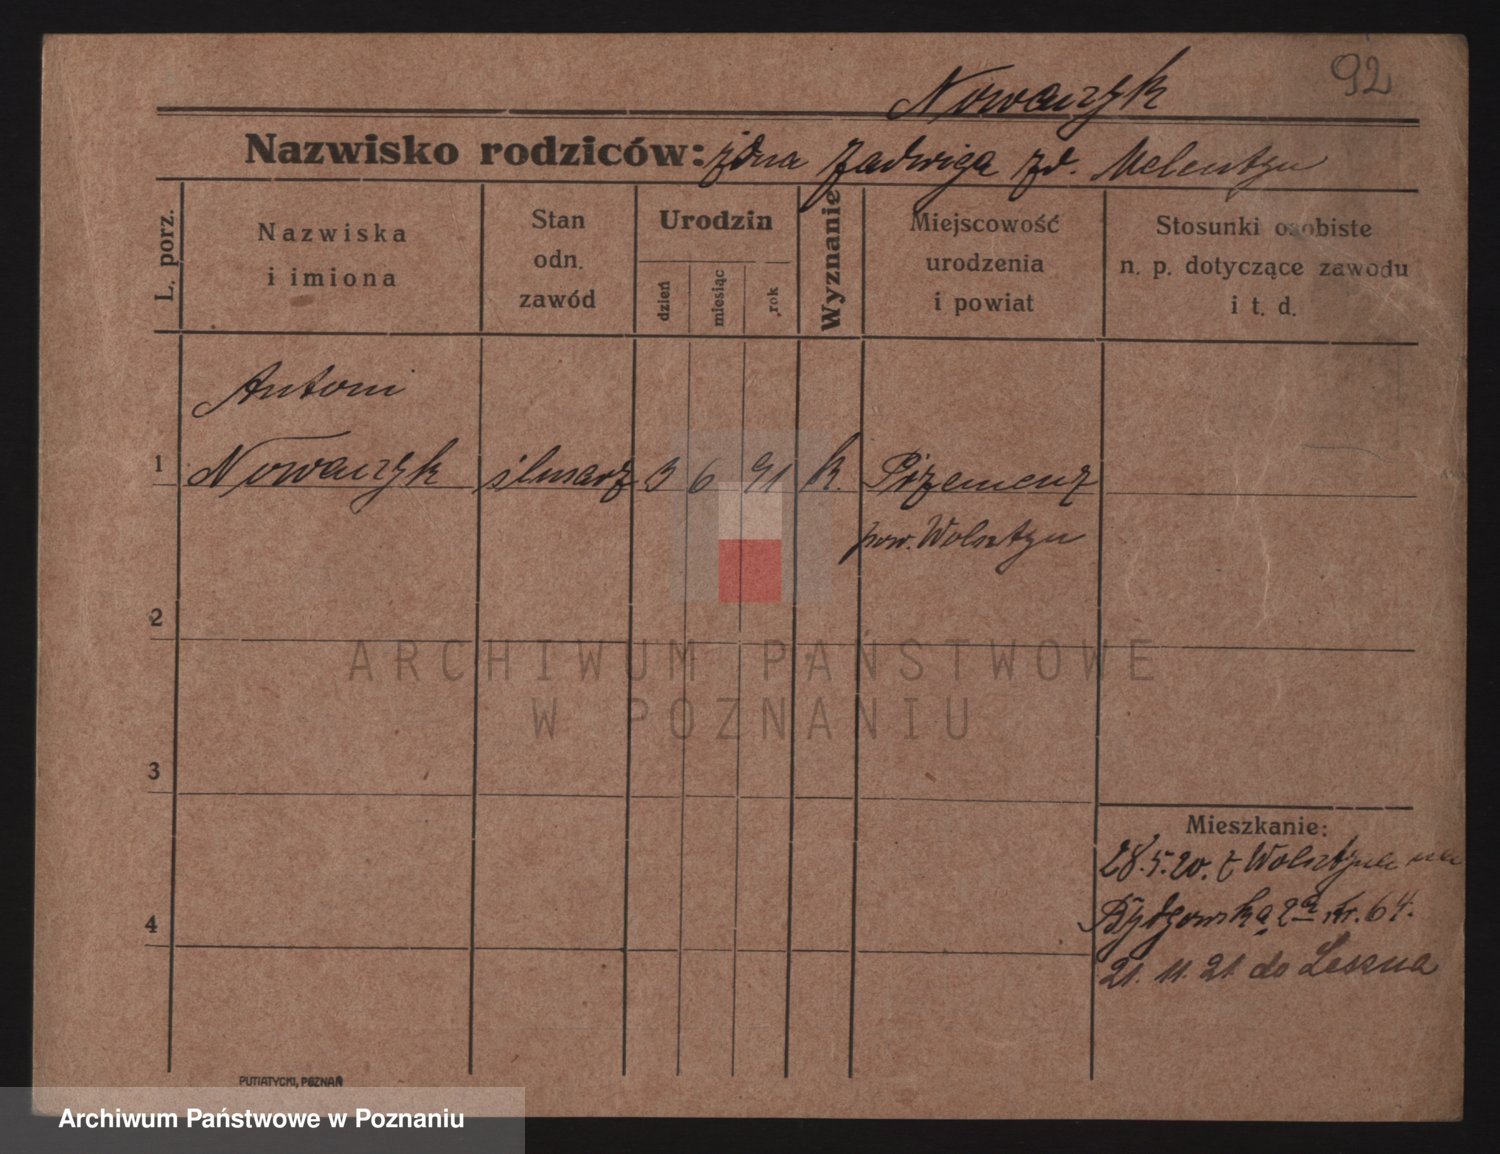 92
Nowaczyk
Nazwisko rodziców: żona Jadwiga zd.
L. porz.
Nazwiska
i imiona
Stan
odn.
zawód
Urodzin
dzień
miesiąc
rok
Wyznanie
Miejscowość
urodzenia
i powiat
Stosunki osobiste
n. p. dotyczące zawodu
i t. d.
Antoni
1 Nowaczyk ślusarz 3 6 91 k. Przemenz
pow. Wolsztyn
2
ARCHIWUM PAŃSTWOWE
W POZNANIU
3
Mieszkanie:
28.5.20. z Wolsztyna na
4 Bydgowska 2a nr. 64.
21. 11. 21. do Leszna
PUTIATYCKI, POZNAŃ
Archiwum Państwowe w Poznaniu